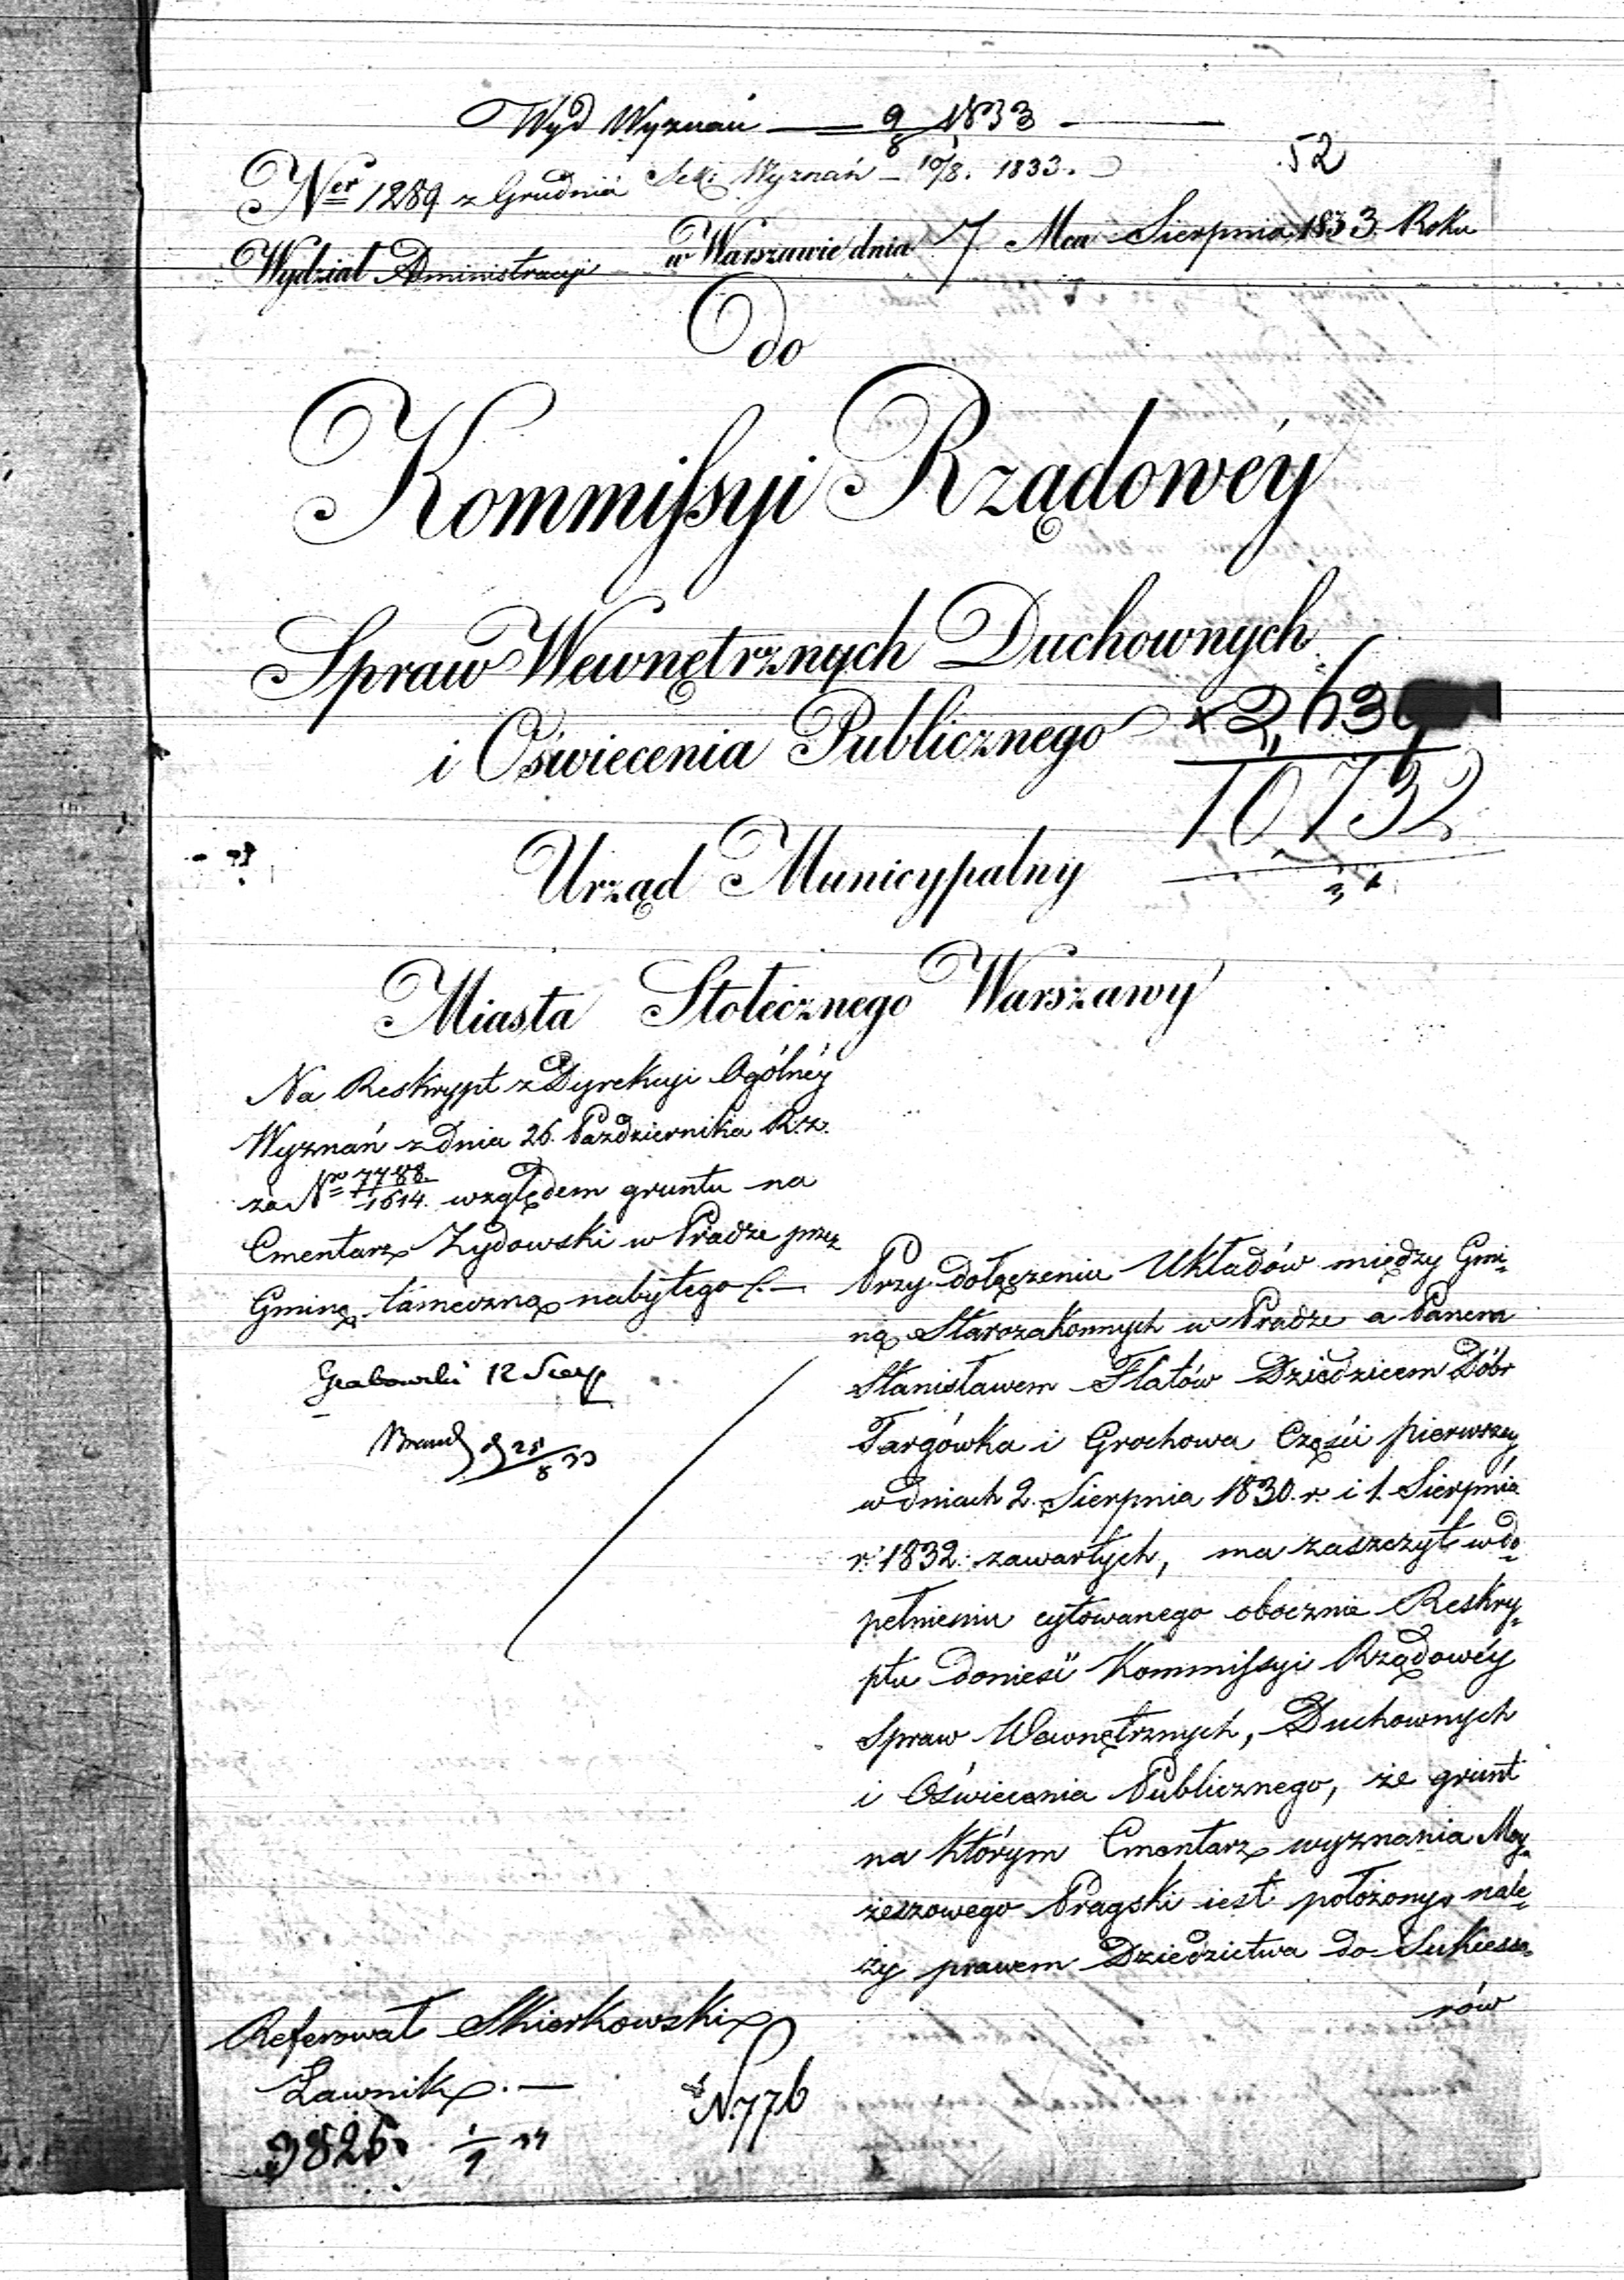 Wyd Wyznań — 9/8 1833 —
Sek: Wyznań – 10/8. 1833.
52
Ner 1289 z Grudnia
Wydział Administracyi w Warszawie dnia 7 Mca Sierpnia 1833 Roku
Do
Kommissyi Rządowéy
Spraw Wewnętrznych Duchownych
i Oświecenia Publicznego
10732
Urząd Municypalny
Miasta Stołecznego Warszawy
Na Reskrypt z Dyrekcyi Ogólnéy
Wyznań z dnia 26. Października R. z.
za No 7788./1614. względem gruntu na
Cmentarz Żydowski w Pradze przez
Gminę tameczną nabytego
Grabowski 12 Sierp
Przy dołączeniu Układów między Gmi-
ną Starozakonnych w Pradze a Panem
Stanisławem Flatów Dziedzicem Dóbr
Targówka i Grochowa Części pierwszey
w dniach 2. Sierpnia 1830. r. i 1. Sierpnia
r. 1832. zawartych, ma zaszczyt w do-
pełnieniu cytowanego obocznie Reskry-
ptu donieść Kommissyi Rządowéy
Spraw Wewnętrznych, Duchownych
i Oświecenia Publicznego, że grunt
na którym Cmentarz wyznania Moy-
żeszowego Pragski iest położony, nale-
ży prawem Dziedzictwa do Sukcesso-
rów
Referował Skierkowski
Ławnik. —
N. 776
3825. 1/1 34